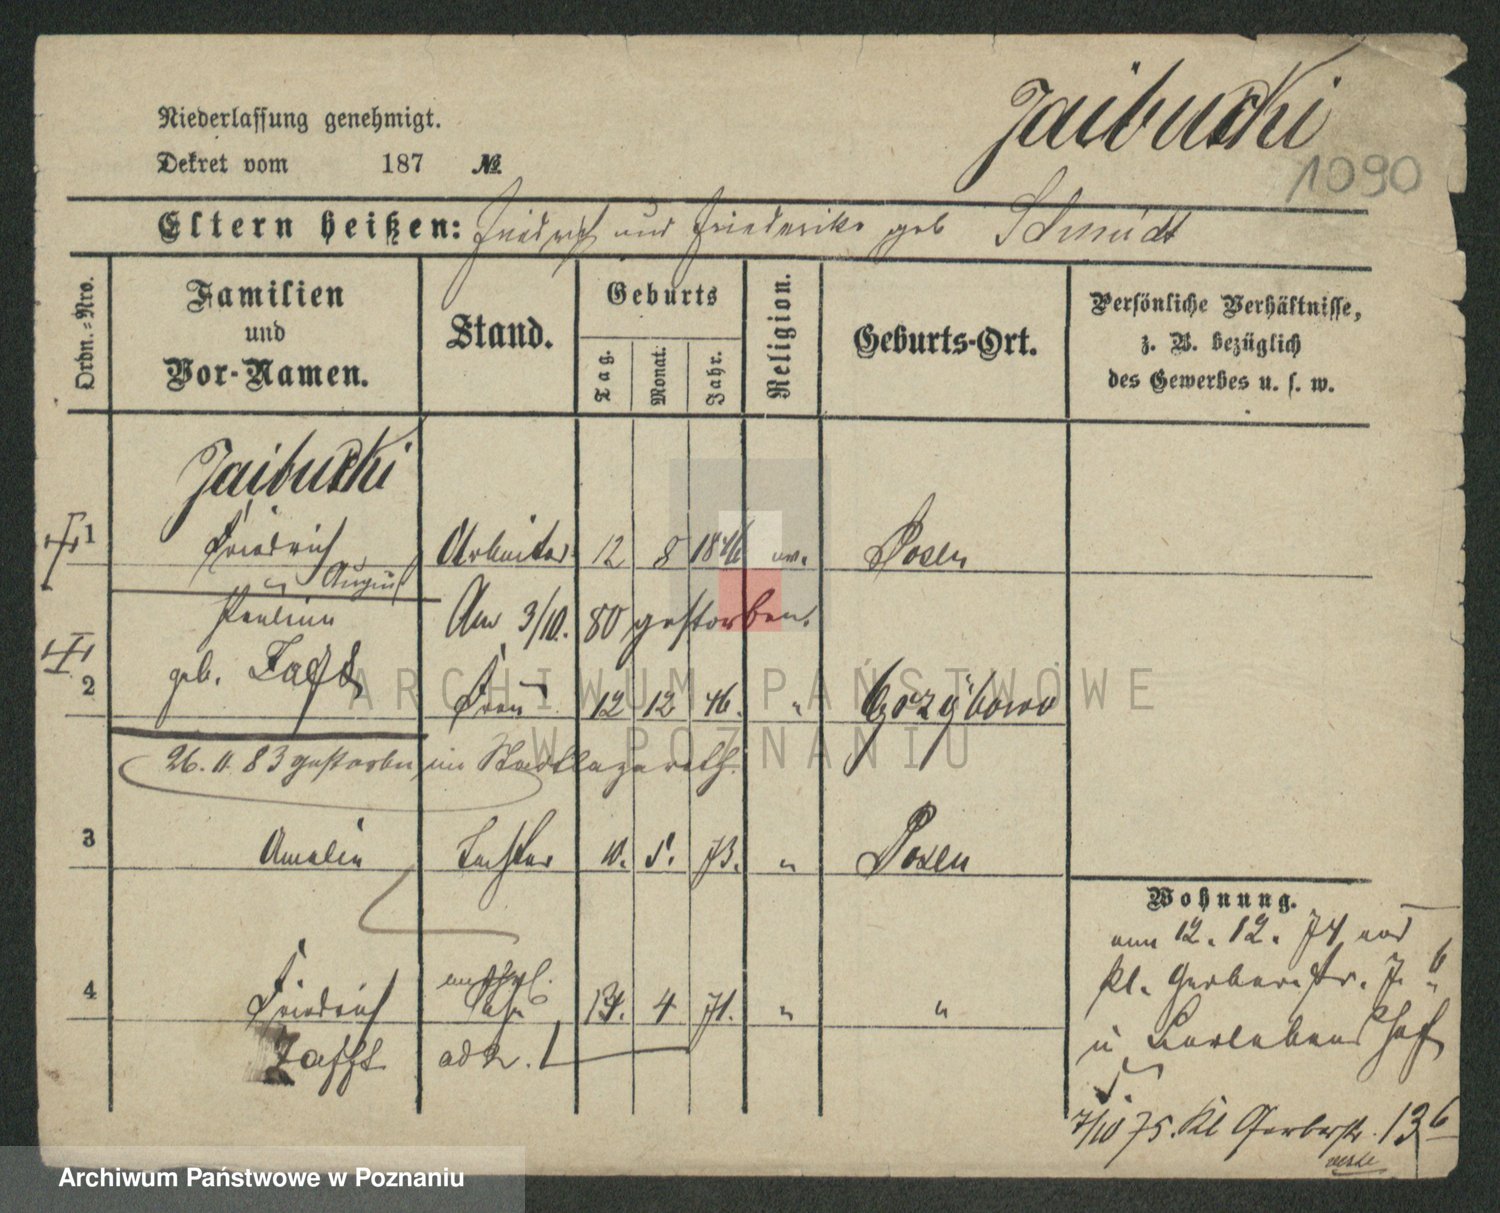 Niederlassung genehmigt.
Dekret vom 187 №
1090
Eltern heißen: Friedrich und Friederike geb Schmidt
Ordn.-Nro.
Familien und Vor-Namen.
Stand.
Geburts
Tag.
Monat.
Jahr.
Religion.
Geburts-Ort.
Persönliche Verhältnisse,
z. B. bezüglich
des Gewerbes u. s. w.
1 Friedrich Arbeiter 12 8 1846 ev. Posen
August
Pauline Am 3/10. 80 gestorben.
2 geb. Frau 12 12 46. "
26. 11. 83 gestorben im Stadtlazareth.
3 Amalie Tochter 10. 5. 73. " Posen
4 Friedrich 4 71. " "
Zafft ad 2.
Wohnung.
12. 12. 74
kl. Gerberstr. 7
7/10 75. Kl Gerberstr. 13 6
ARCHIWUM PAŃSTWOWE
W POZNANIU
Archiwum Państwowe w Poznaniu